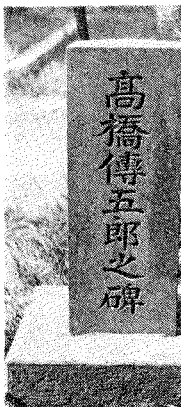 髙橋傳五郎之碑